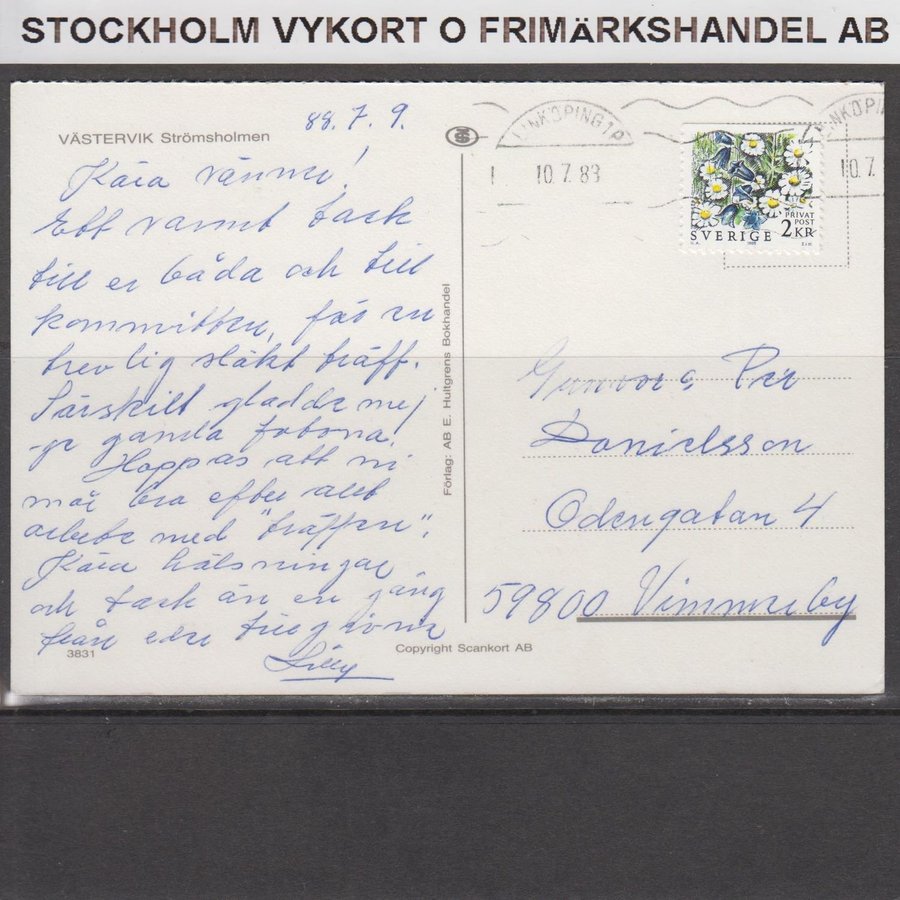 STOCKHOLM VYKORT O FRIMÄRKSHANDEL AB
VÄSTERVIK Strömsholmen
88.7.9.
Kära vänner!
Ett varmt tack
till er båda och till
kommitten, för en
trevlig släkt träff.
Särskilt gladde mej
de gamla fotona.
Hoppas att ni
mår bra efter allt
arbete med "träffen".
Kära hälsningar
och tack än en gång
från eder tillgivna
Lilly
3831
Förlag: AB E. Hultgrens Bokhandel
Copyright Scankort AB
LINKÖPING 1
10.7.88
LINKÖPIN
10.7.8
PRIVAT
POST
SVERIGE 2KR
Gunvor o Per
Danielsson
Odengatan 4
59800 Vimmerby